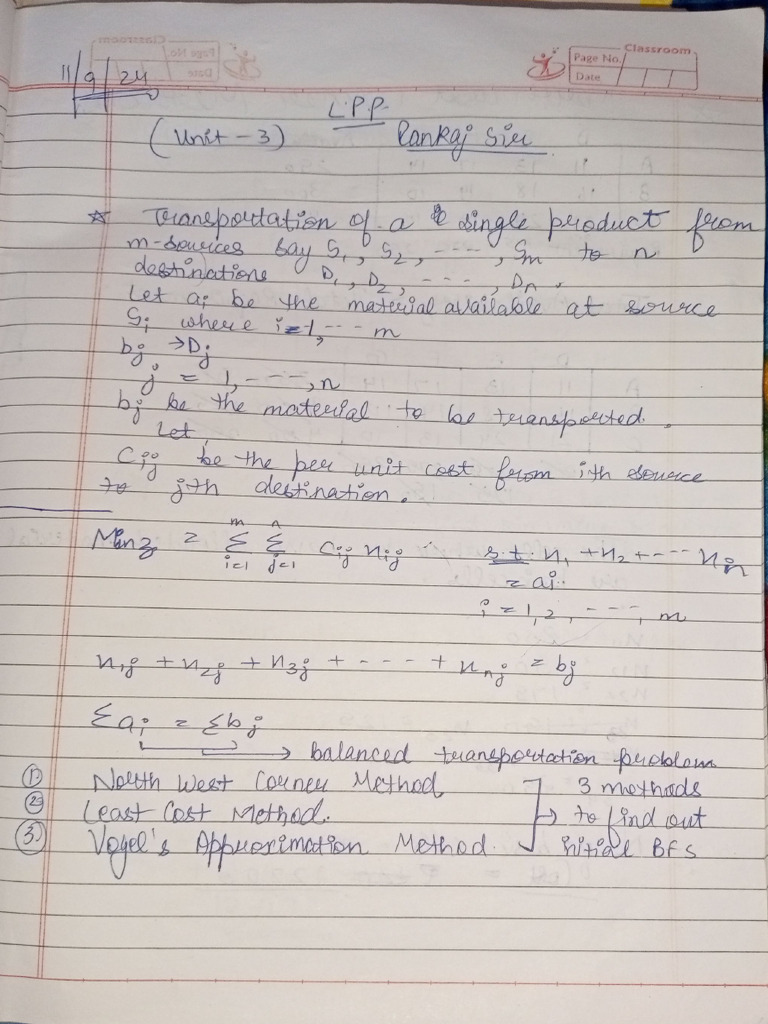 Classroom
Page No.
Date
11/9/24
L.P.P.
(Unit - 3) Pankaj Sir
☆ Transportation of a single product from
m-sources say S1, S2, ----, Sm to n
destinations D1, D2, - - - -, Dn.
Let ai be the material available at source
Si where i=1, --- m
bj → Dj
j = 1, - - - -, n
bj be the material to be transported.
Let,
Cij be the per unit cost from ith source
to jth destination.
Min z = m Σ i=1 n Σ j=1 Cij xij s.t. x1 + x2 + --- xin
= ai
i = 1, 2, - - - -, m
x1j + x2j + x3j + - - - - + xnj = bj
Σai = Σbj
→ balanced transportation problem
① North West Corner Method
② Least Cost Method.
③ Vogel's Approximation Method.
3 methods
→ to find out
initial BFS